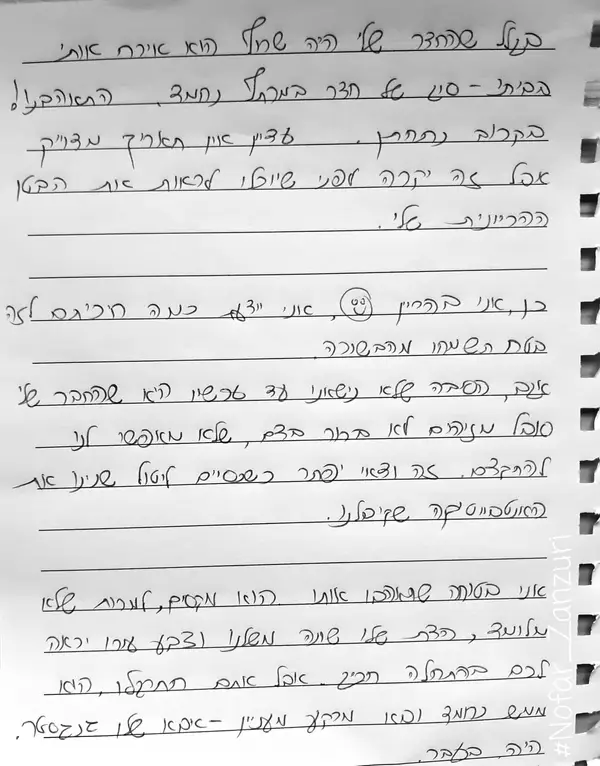 בגלל שהחדר שלי היה שרוף הוא אירח אותי
בביתי - סוג של חדר במרתף נחמד. התאהבנו!
בקרוב נתחתן. עדיין אין תאריך מדוייק
אבל זה יקרה לפני שיוכלו לראות את הבטן
ההריונית שלי.
כן, אני בהריון, אני יודעת כמה חיכיתם לזה
בטח תשמחו מהבשורה.
אגב, הסיבה שלא נישאנו עד עכשיו היא שהחבר שלי
סובל מזיהום לא ברור בדם, שלא מאפשר לנו
להתקדם. זה ודאי יפתר כשנסיים ליטול שנינו את
האנטיביוטיקה שקיבלנו.
אני בטוחה שתאהבו אותו. הוא מקסים, למרות שלא
מלומד, הדת שלו שונה משלנו וצבע עורו יראה
לכם בהתחלה חריג. אבל אתם תתרגלו, הוא
ממש נחמד ובא מרקע מעניין - אבא שלו גנגסטר.
היה בעבר.
#Nofar_Zanzuri